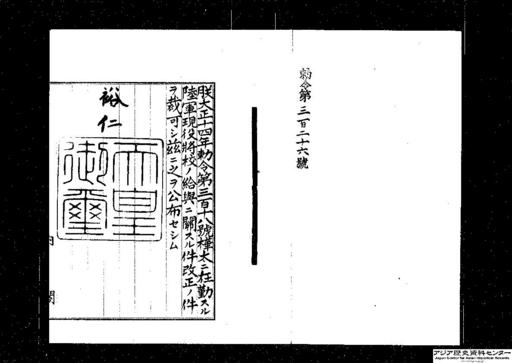 勅令第三百二十六號
朕大正十四年勅令第三百十八號樺太ニ在勤スル
陸軍現役將校ノ給與ニ關スル件改正ノ件
ヲ裁可シ茲ニ之ヲ公布セシム
裕仁
天皇
御璽
内閣
アジア歴史資料センター
Japan Center for Asian Historical Records